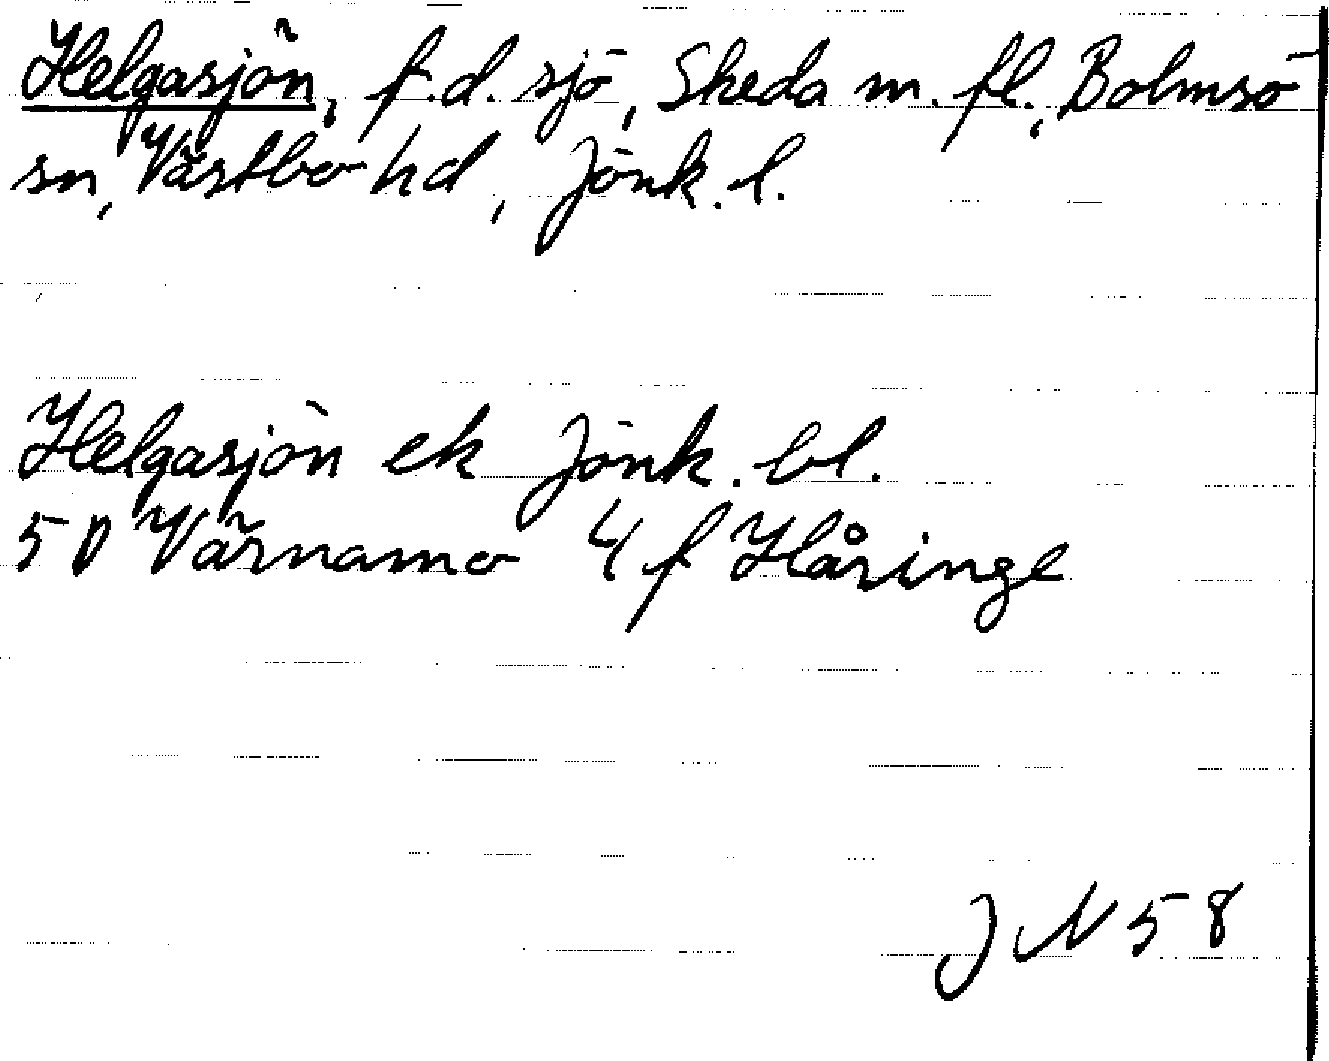 Helgasjön, f.d. sjö, Skeda m. fl., Bolmsö
sn, Västbo hd, Jönk. l.
Helgasjön ek Jönk. bl.
5 D Värnamo 4 f Håringe
JN 58